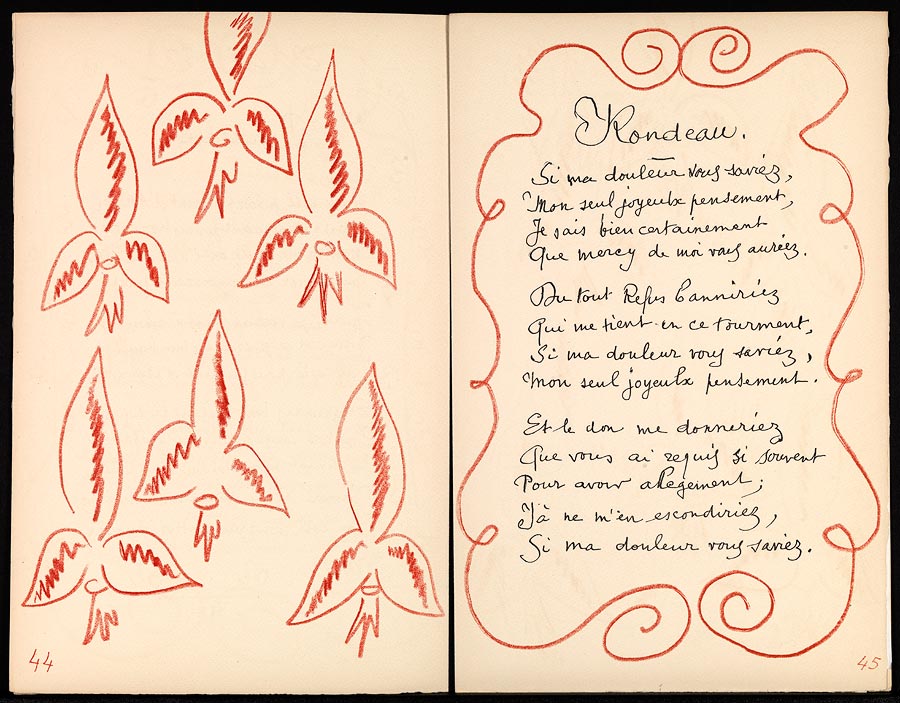 44
Rondeau.
Si ma douleur vous saviez,
Mon seul joyeulx pensement,
Je sais bien certainement
Que mercy de moi vous auriez.
Du tout Refus banniriez
Qui me tient en ce tourment,
Si ma douleur vous saviez,
Mon seul joyeulx pensement.
Et le don me donneriez
Que vous ai requis si souvent
Pour avoir allegement;
Jà ne m'en escondiriez,
Si ma douleur vous saviez.
45